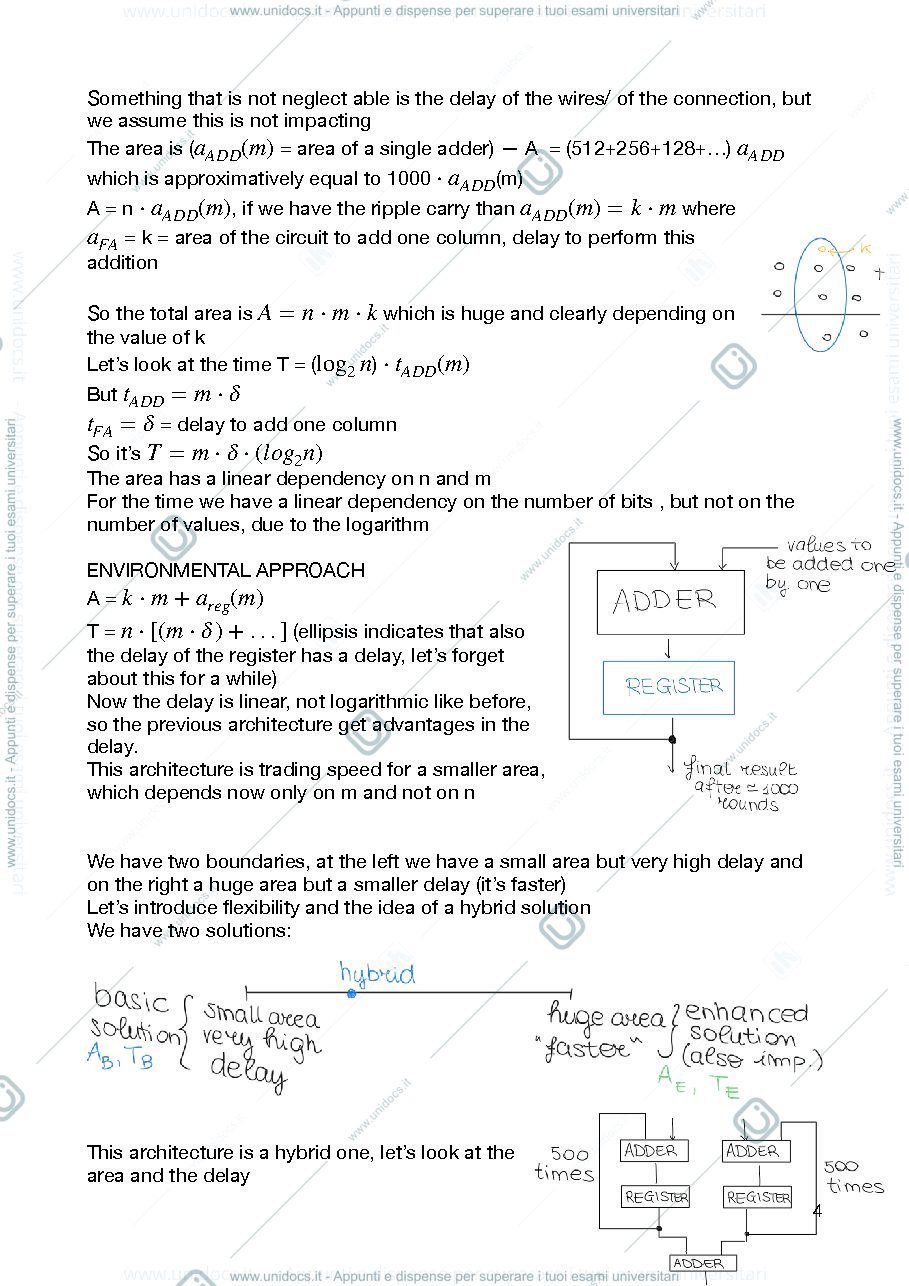 www.unidocs.it - Appunti e dispense per superare i tuoi esami universitari
Something that is not neglect able is the delay of the wires/ of the connection, but
we assume this is not impacting
The area is (a_ADD(m) = area of a single adder) — A = (512+256+128+…) a_ADD
which is approximatively equal to 1000 · a_ADD(m)
A = n · a_ADD(m), if we have the ripple carry than a_ADD(m) = k · m where
a_FA = k = area of the circuit to add one column, delay to perform this
addition
k
+
So the total area is A = n · m · k which is huge and clearly depending on
the value of k
Let's look at the time T = (log₂ n) · t_ADD(m)
But t_ADD = m · δ
t_FA = δ = delay to add one column
So it's T = m · δ · (log₂n)
The area has a linear dependency on n and m
For the time we have a linear dependency on the number of bits , but not on the
number of values, due to the logarithm
ENVIRONMENTAL APPROACH
A = k · m + a_reg(m)
T = n · [(m · δ) + . . . ] (ellipsis indicates that also
the delay of the register has a delay, let's forget
about this for a while)
Now the delay is linear, not logarithmic like before,
so the previous architecture get advantages in the
delay.
This architecture is trading speed for a smaller area,
which depends now only on m and not on n
values to
be added one
by one
ADDER
REGISTER
final result
after ≃ 1000
rounds
We have two boundaries, at the left we have a small area but very high delay and
on the right a huge area but a smaller delay (it's faster)
Let's introduce flexibility and the idea of a hybrid solution
We have two solutions:
hybrid
basic
solution
A_B, T_B
small area
very high
delay
huge area
"faster"
enhanced
solution
(also imp.)
A_E, T_E
This architecture is a hybrid one, let's look at the
area and the delay
500
times
ADDER
ADDER
REGISTER
REGISTER
500
times
ADDER
4
www.unidocs.it - Appunti e dispense per superare i tuoi esami universitari
www.unidocs.it - Appunti e dispense per superare i tuoi esami universitari
www.unidocs.it - Appunti e dispense per superare i tuoi esami universitari